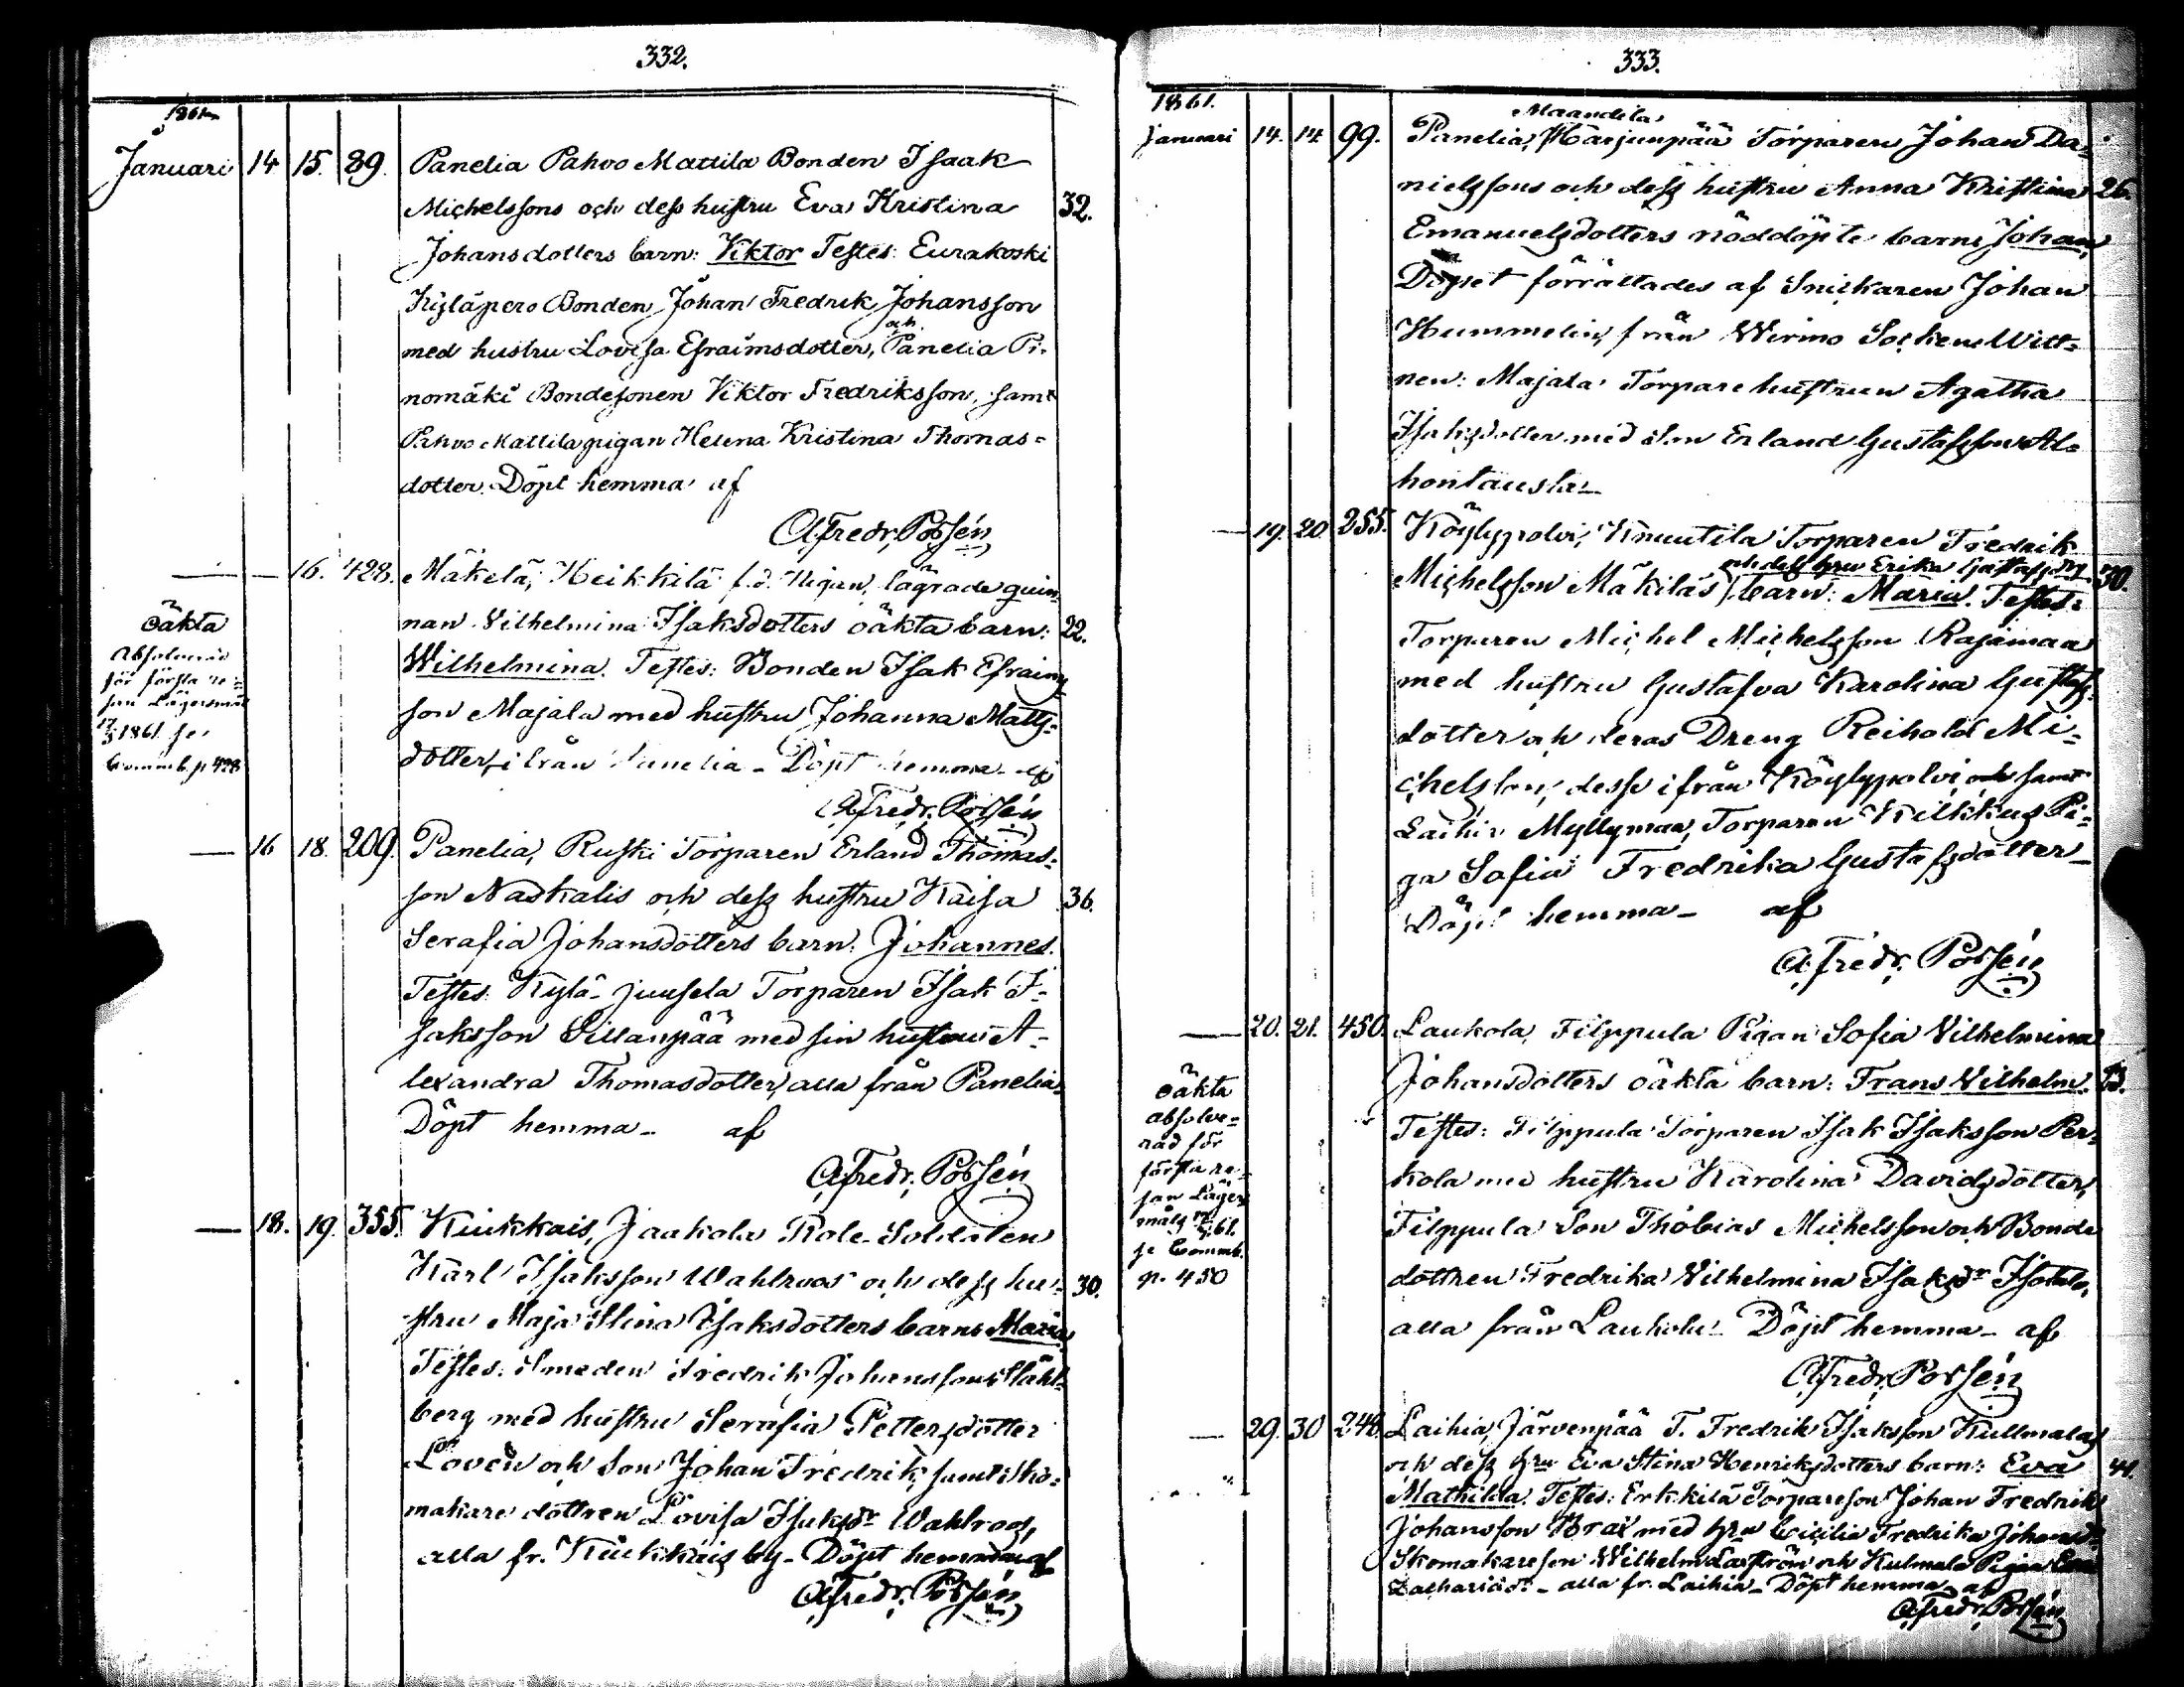 332.
1861
Januari 14 15. 89. Panelia Pahvo Mattila Bonden Isaak
Michelssons och dess hustru Eva Kristina 32.
Johansdotters barn: Viktor Testes: Eurakoski
Kyläpero Bonden Johan Fredrik Johansson
med hustru Lovisa Efraimsdotter, och Panelia Pi-
nomäki Bondesonen Viktor Fredriksson, samt
Pahvo Mattila pigan Helena Kristina Thomas=
dotter. Döpt hemma af
A. Fredr. Possén
— — 16. 428. Mäkelä, Heikkilä f.d. Pigan, lägrade quin-
nan Vilhelmina Isaksdotters oäkta barn: 22.
Wilhelmina. Testes: Bonden Isak Efraims
son Majala med hustru Johanna Matts-
dotter, ifrån Panelia - Döpt hemma af
A. Fredr. Possén
oäkta
Absolverad
för första re-
san Lägersmål
1861 se
Commb. p 428
— 16 18. 209. Panelia, Ruski Torparen Erland Thomas-
son Naskalis och dess hustru Kaisa 36.
Serafia Johansdotters barn: Johannes.
Testes: Kylä-Juusela Torparen Isak I-
saksson Sillanpää med sin hustru A-
lexandra Thomasdotter, alla från Panelia
Döpt hemma - af
A. Fredr. Possén
— 18. 19. 355. Kiukkais, Jaakola Rote-Soldaten
Karl Isaksson Wahlroos och dess hu- 30.
stru Maja Stina Isaksdotters barn: Maria
Testes: Smeden Fredrik Johansson Ståhl-
berg med hustru Serafia Pettersdotter
Lovén och Son Johan Fredrik, samt Sko-
makare dottren Lovisa Isaksdr Wahlroos,
alla fr. Kiukkais by - Döpt hemma af
A. Fredr. Possén
333.
1861.
Januari 14. 14 99. Panelia, Maandila Harjunpää Torparen Johan Da-
nielssons och dess hustru Anna Kristina 26.
Emanuelsdotters nöddöpte barn: Johan,
Döpset förrättades af Snickaren Johan
Hummelin, från Wirmo Socken Witt-
nen: Majala Torpare hustrun Agatha
Isaksdotter med Son Erland Gustafsson Al-
hontausta -
— 19. 20. 255. Köylypolvi, Knuutila Torparen Fredrik
Michelsson Mäkiläs och dess hru Erika Gustafsdrs barn: Maria. Testes: 30.
Torparen Michel Michelsson Rajamaa
med hustru Gustafva Karolina Gustafs-
dotter och deras Dreng Reihold Mi-
chelsson, desse ifrån Köylypolvi, och samt
Laihia Myllymaa, Torparen Kilkkus Pi-
ga Sofia Fredrika Gustafsdotter -
Döpt hemma - af
A. Fredr. Possén
— 20. 21. 450. Laukola, Filppula Pigan Sofia Vilhelmina
Johansdotters oäkta barn: Frans Vilhelm. 23.
Testes: Filppula Torparen Isak Isaksson Per-
kola med hustru Karolina Davidsdotter,
Filppula Son Thobias Michelsson och Bonde
dottren Fredrika Vilhelmina Isaksdr Isotalo,
alla från Laukola - Döpt hemma - af
A. Fredr. Possén
oäkta
absolve-
rad för
första re-
san Läger
målg
61.
se Commb.
p. 450
— 29. 30 248. Laihia, Järvenpää T. Fredrik Isaksson Kullmalas
och dess hru Eva Stina Henriksdotters barn: Eva 41.
Mathilda. Testes: Erkkilä Torpareson Johan Fredrik
Johansson med hru Cicilia Fredrika Johansdr
Skomakareson Wilhelm Lagström och Kulmala Pigan Eva
Zachariedr - alla fr. Laihia - Döpt hemma af
A. Fredr. Possén